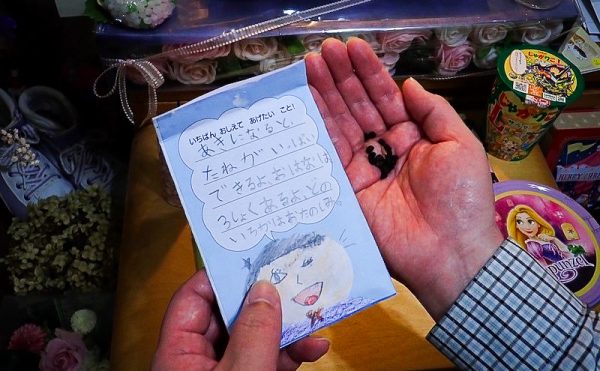 いちばん おしえて あげたい こと!
あきになると、
たねが いっぱい
できるよ、おはなは
3しょくあるよ、どの
いろかはおたのしみ。
じゃがりこ
Rapunzel
MERRY CHRIS